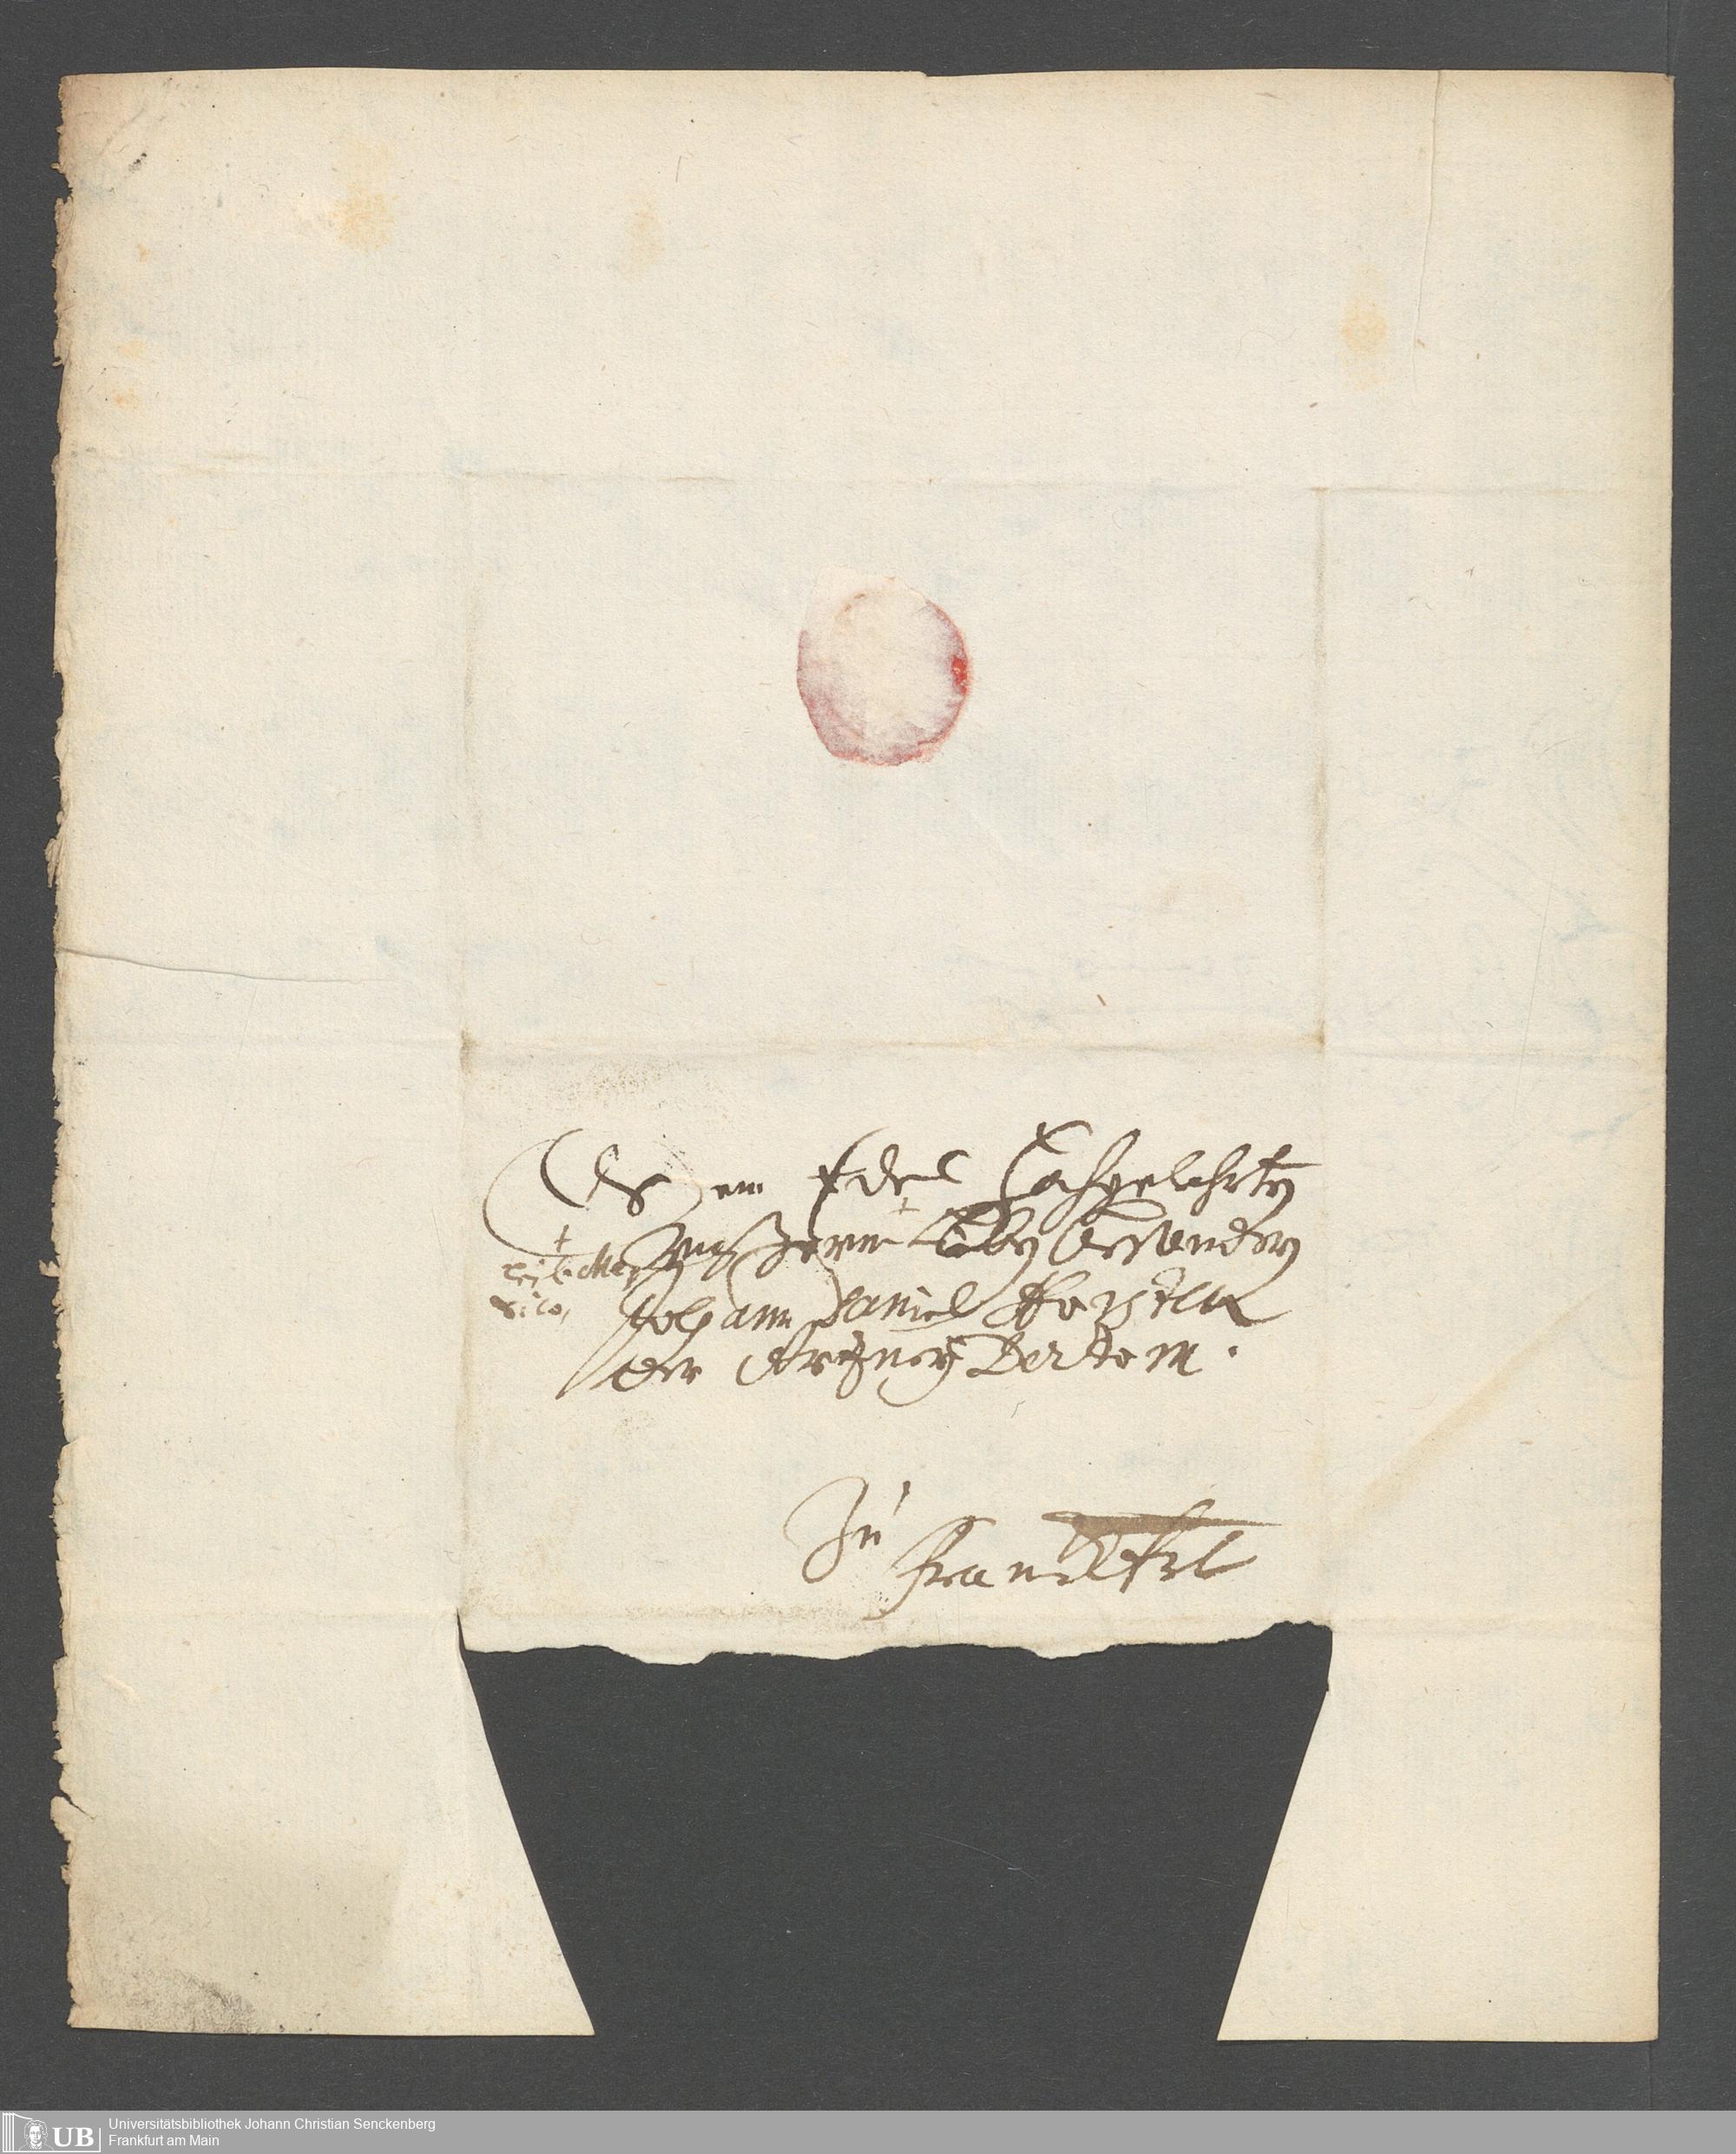 Dem Edel Hochgelehrten
Herrn
+
Leib Me¬
dico,
Johann Daniel Horsten
der Artzney Doctorn.
Zu
Franckfurt
Universitätsbibliothek Johann Christian Senckenberg
Frankfurt am Main
UB